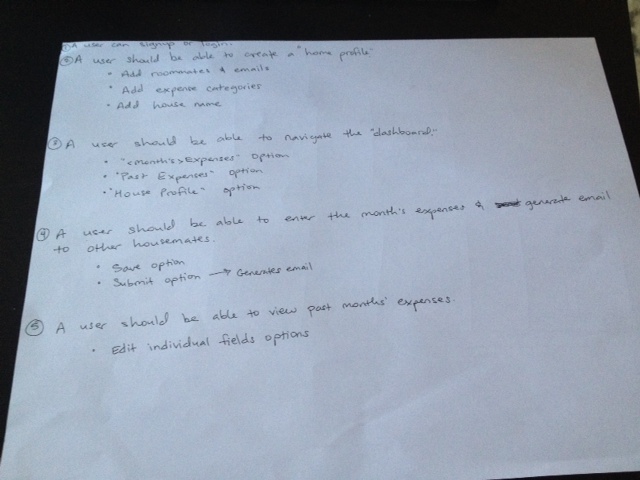 ① A user can signup or login.
② A user should be able to create a "home profile"
• Add roommates & emails
• Add expense categories
• Add house name
③ A user should be able to navigate the "dashboard."
• "<month's> Expenses" option
• "Past Expenses" option
• "House Profile" option
④ A user should be able to enter the month's expenses & generate email
to other housemates.
• Save option
• Submit option → Generates email
⑤ A user should be able to view past months' expenses.
• Edit individual fields options